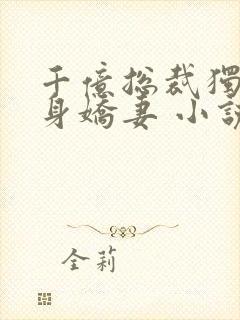 千億總裁獨
身嬌妻 小說
全莉